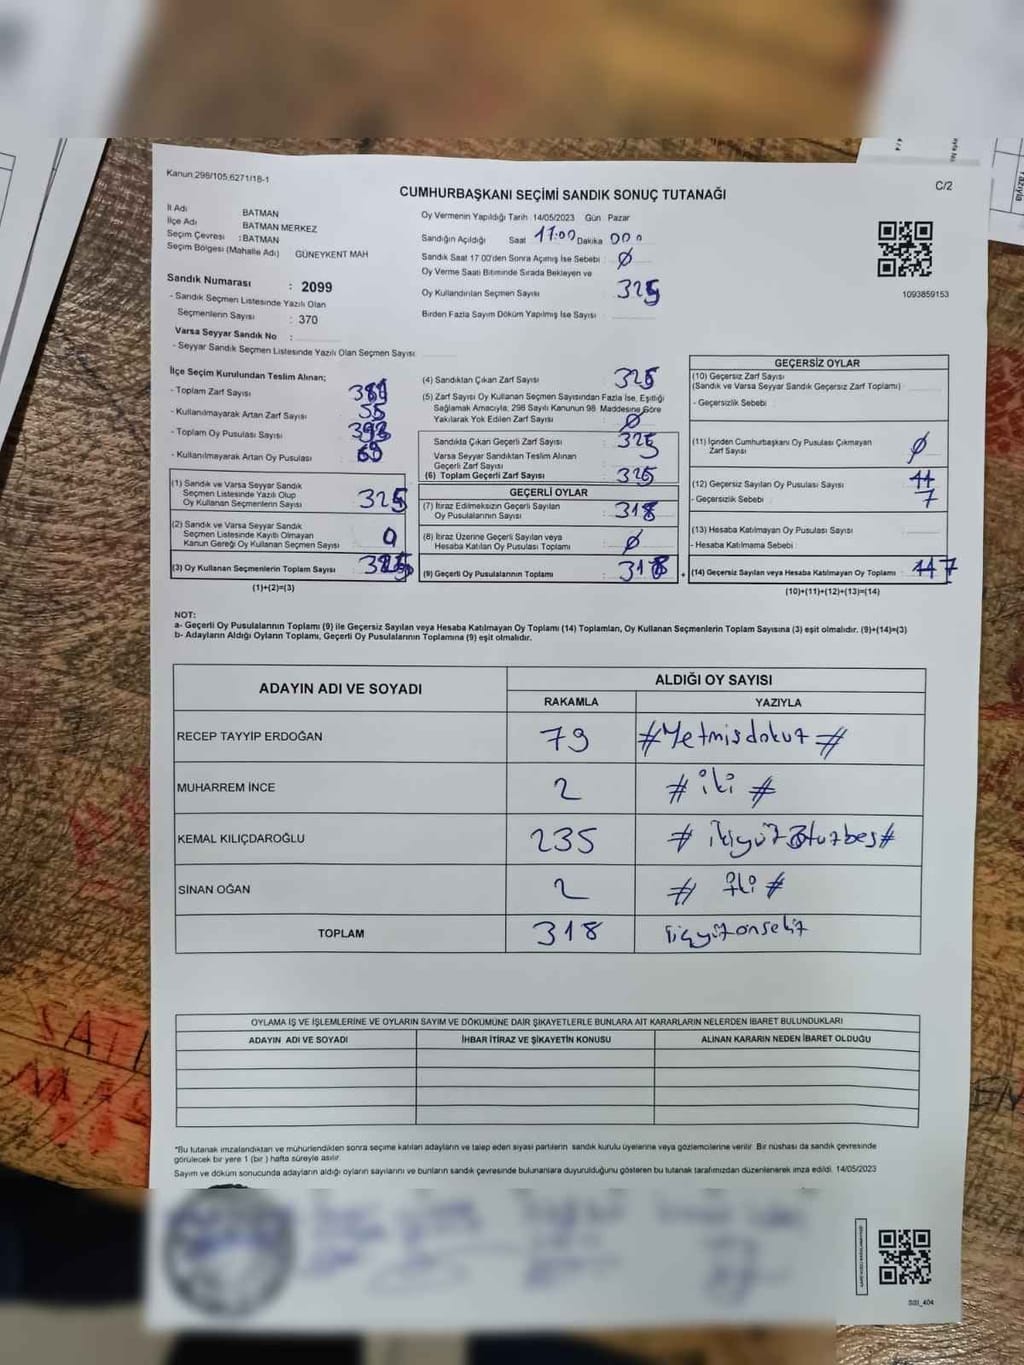 Kanun:298/105,6271/18-1
CUMHURBAŞKANI SEÇİMİ SANDIK SONUÇ TUTANAĞI
C/2
İl Adı BATMAN
İlçe Adı BATMAN MERKEZ
Seçim Çevresi :BATMAN
Seçim Bölgesi (Mahalle Adı) GÜNEYKENT MAH
Sandık Numarası : 2099
- Sandık Seçmen Listesinde Yazılı Olan
Seçmenlerin Sayısı : 370
Varsa Seyyar Sandık No :
- Seyyar Sandık Seçmen Listesinde Yazılı Olan Seçmen Sayısı:
Oy Vermenin Yapıldığı Tarih 14/05/2023 Gün Pazar
Sandığın Açıldığı Saat 17:00 Dakika 00
Sandık Saat 17.00'den Sonra Açımış İse Sebebi : Ø
Oy Verme Saati Bitiminde Sırada Bekleyen ve
Oy Kullandırılan Seçmen Sayısı : 325
Birden Fazla Sayım Döküm Yapılmış İse Sayısı :
1093859153
İlçe Seçim Kurulundan Teslim Alınan;
- Toplam Zarf Sayısı
- Kullanılmayarak Artan Zarf Sayısı : 55
- Toplam Oy Pusulası Sayısı : 393
- Kullanılmayarak Artan Oy Pusulası :
(1) Sandık ve Varsa Seyyar Sandık
Seçmen Listesinde Yazılı Olup
Oy Kullanan Seçmenlerin Sayısı : 325
(2) Sandık ve Varsa Seyyar Sandık
Seçmen Listesinde Kayıtlı Olmayan
Kanun Gereği Oy Kullanan Seçmen Sayısı : 0
(3) Oy Kullanan Seçmenlerin Toplam Sayısı : 325
(1)+(2)=(3)
(4) Sandıktan Çıkan Zarf Sayısı : 325
(5) Zarf Sayısı Oy Kullanan Seçmen Sayısından Fazla İse, Eşitliği
Sağlamak Amacıyla, 298 Sayılı Kanunun 98. Maddesine Göre
Yakılarak Yok Edilen Zarf Sayısı : Ø
Sandıkta Çıkan Geçerli Zarf Sayısı : 325
Varsa Seyyar Sandıktan Teslim Alınan
Geçerli Zarf Sayısı
(6) Toplam Geçerli Zarf Sayısı : 325
GEÇERLİ OYLAR
(7) İtiraz Edilmeksizin Geçerli Sayılan
Oy Pusulalarının Sayısı : 318
(8) İtiraz Üzerine Geçerli Sayılan veya
Hesaba Katılan Oy Pusulası Toplamı : Ø
(9) Geçerli Oy Pusulalarının Toplamı : 318
GEÇERSİZ OYLAR
(10) Geçersiz Zarf Sayısı
(Sandık ve Varsa Seyyar Sandık Geçersiz Zarf Toplamı)
- Geçersizlik Sebebi :
(11) İçinden Cumhurbaşkanı Oy Pusulası Çıkmayan
Zarf Sayısı : Ø
(12) Geçersiz Sayılan Oy Pusulası Sayısı :
- Geçersizlik Sebebi : 7
(13) Hesaba Katılmayan Oy Pusulası Sayısı :
- Hesaba Katılmama Sebebi :
(14) Geçersiz Sayılan veya Hesaba Katılmayan Oy Toplamı : 7
(10)+(11)+(12)+(13)=(14)
NOT:
a- Geçerli Oy Pusulalarının Toplamı (9) ile Geçersiz Sayılan veya Hesaba Katılmayan Oy Toplamı (14) Toplamları, Oy Kullanan Seçmenlerin Toplam Sayısına (3) eşit olmalıdır. (9)+(14)=(3)
b- Adayların Aldığı Oyların Toplamı, Geçerli Oy Pusulalarının Toplamına (9) eşit olmalıdır.
ADAYIN ADI VE SOYADI ALDIĞI OY SAYISI
RAKAMLA YAZIYLA
RECEP TAYYİP ERDOĞAN 79 #Yetmisdokuz#
MUHARREM İNCE 2 # iki #
KEMAL KILIÇDAROĞLU 235 # ikiyüzotuzbeş#
SİNAN OĞAN 2 # iki #
TOPLAM 318 üçyüzonsekiz
OYLAMA İŞ VE İŞLEMLERİNE VE OYLARIN SAYIM VE DÖKÜMÜNE DAİR ŞİKAYETLERLE BUNLARA AİT KARARLARIN NELERDEN İBARET BULUNDUKLARI
ADAYIN ADI VE SOYADI İHBAR İTİRAZ VE ŞİKAYETİN KONUSU ALINAN KARARIN NEDEN İBARET OLDUĞU
*Bu tutanak imzalandıktan ve mühürlendikten sonra seçime katılan adayların ve talep eden siyasi partilerin sandık kurulu üyelerine veya gözlemcilerine verilir. Bir nüshası da sandık çevresinde
görülecek bir yere 1 (bir ) hafta süreyle asılır.
Sayım ve döküm sonucunda adayların aldığı oyların sayılarını ve bunların sandık çevresinde bulunanlara duyurulduğunu gösteren bu tutanak tarafımızdan düzenlenerek imza edildi. 14/05/2023
SSI_404